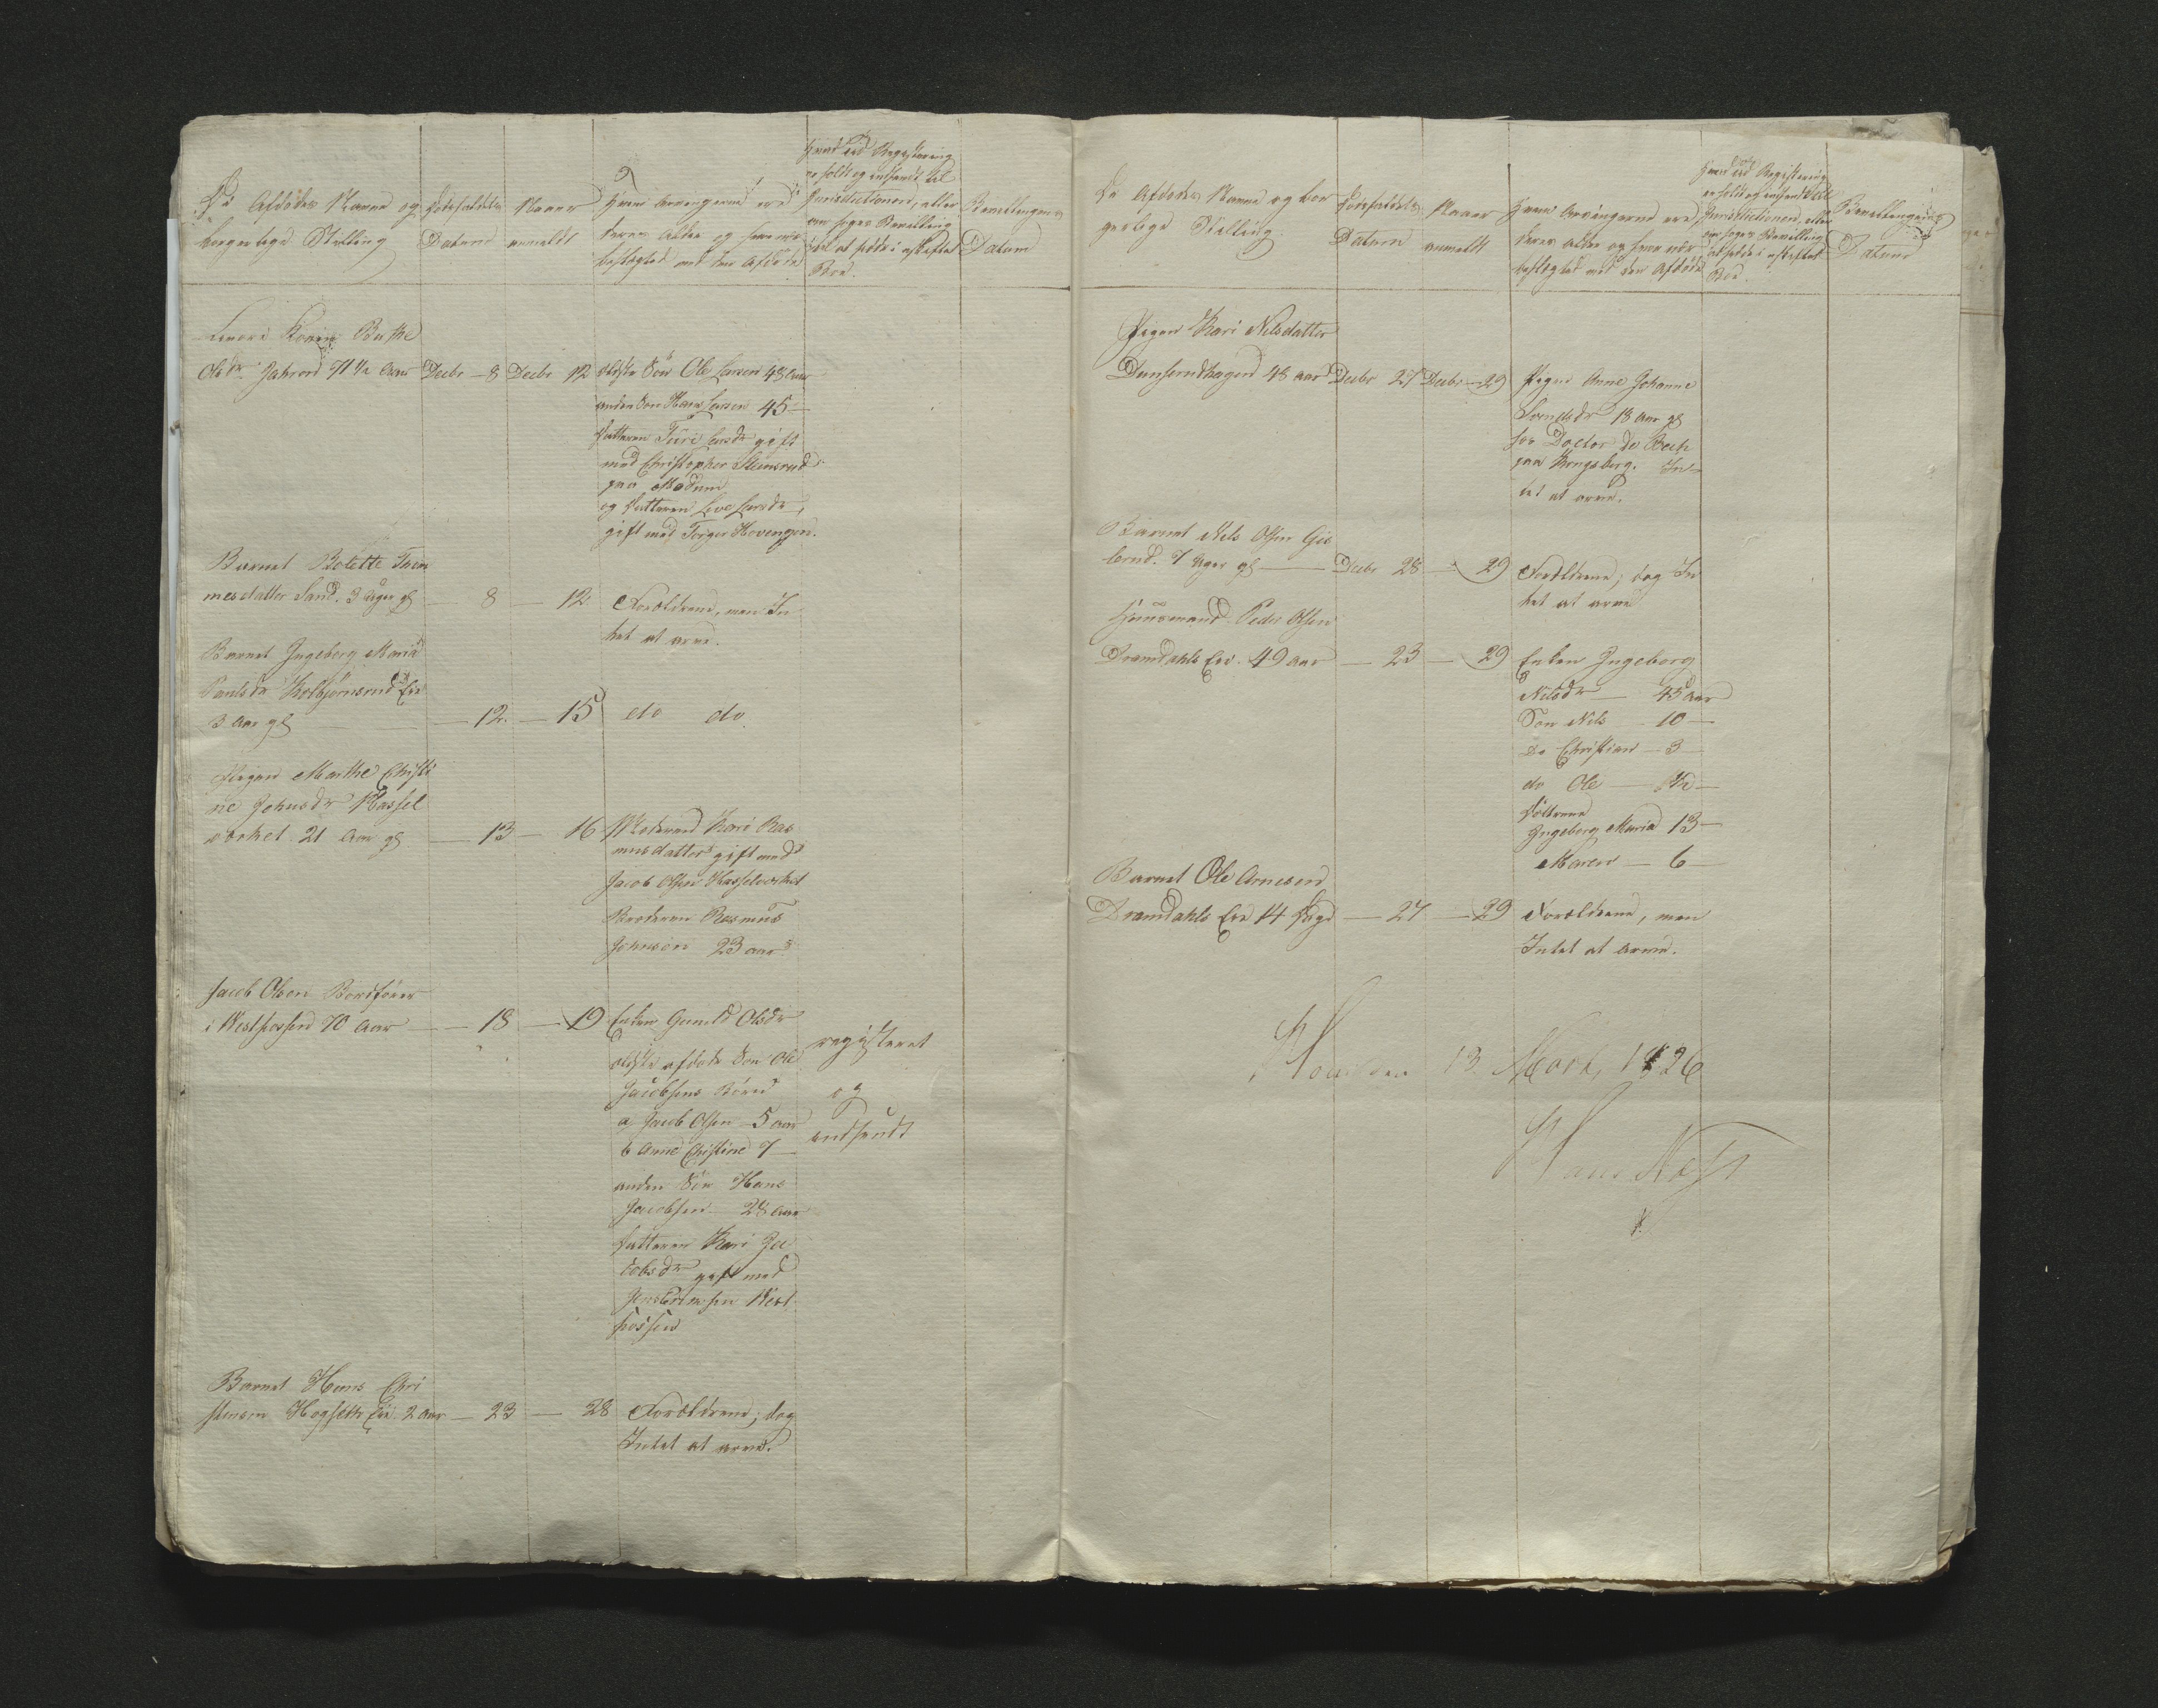 De Afdødes Navne og
borgerlige Stilling
Dødsfaldets
Datum
Naar
anmeldt
Hvem Arvingerne ere
deres Alder og hvor nær
beslægted med den Afdøde
Hvad ved Registering
er holdt og indsendt til
Jurisdictionen, eller
om søges Bevilling
til at sidde i uskiftet
Boe.
Bevillingens
Datum
Ruthe
Olsdr Jahren 71½ Aar Decbr 8 Decbr 12 ældste Søn Ole Larsen 48 Aar
anden Søn Hans Larsen 45 —
Datteren Turi Larsdr gift
med Christopher Steensrud
paa Modum
og Datteren Live Larsdr,
gift med Torger Hovengen.
Barnet Bolette Thom
mesdatter Sand. 3 Uger gl — 8 — 12. Forældrene, men In
tet at arve.
Barnet Ingeborg Maria
Paulsdr Kolbjørnsrud Eie
3 Aar gl — 12. — 15 do do
Pigen Marthe Christi
ne Johnsdr Hassel
værket 21 Aar gl — 13 — 16 Moderen Kari Ras
musdatter gift med
Jacob Olsen Hasselverket
Broderen Rasmus
Johnsen 23 aar
Jacob Olsen Bordfører
i Westfossen 70 Aar — 18 — 19 Enken Gunild Olsdr
ældste afdøde Søn Ole
Jacobsens Børn
a, Jacob Olsen 5 aar
b Anne Christine 7 —
anden Søn Hans
Jacobsen 28 aar
Datteren Kari Ja
cobsdr gift med
Jens Westfossen
registeret
og
indsendt
Barnet Hans Chri
stensen Hogseth Eie 2 aar — 23 — 28 Forældrene; dog
Intet at arve.
De Afdødes Navne og bor
gerlige Stilling
Dødsfaldets
Datum
Naar
anmeldt
Hvem Arvingerne ere
deres Alder og hvor nær
beslægted med den Afdøde
Hvad ved Registering
er holdt og indsendt til
Jurisdictionen, eller
om søges Bevilling
at sidde i uskiftet
Boe.
Bevillingens
Datum
Pigen Kari Nilsdatter
Dunserudhagen 48 aar Decbr 27 Decbr 29 Pigen Anne Johanne
Svendsdr 18 Aar gl
hos Doctor de Besche
paa Kongsberg. In
tet at arve.
Barnet Nils Olsen Gie
lerud. 7 Uger gl — Decbr 28 — 29 Forældrene; dog In
tet at arve
Huusmand Peder Olsen
Dramdahls Eie. 49 aar — 23 — 29 Enken Ingeborg
Nilsdr — 45 aar
Søn Nils — 10 —
Do Christian — 3 —
do Ole — ½ —
Døttrene
Ingeborg Maria 13 —
Maren — 6 —
Barnet Ole Arnesen
Dramdahls Eie 14 Dage — 27 — 29 Forældrene, men
Intet at arve.
13 Mart, 1826
Hans